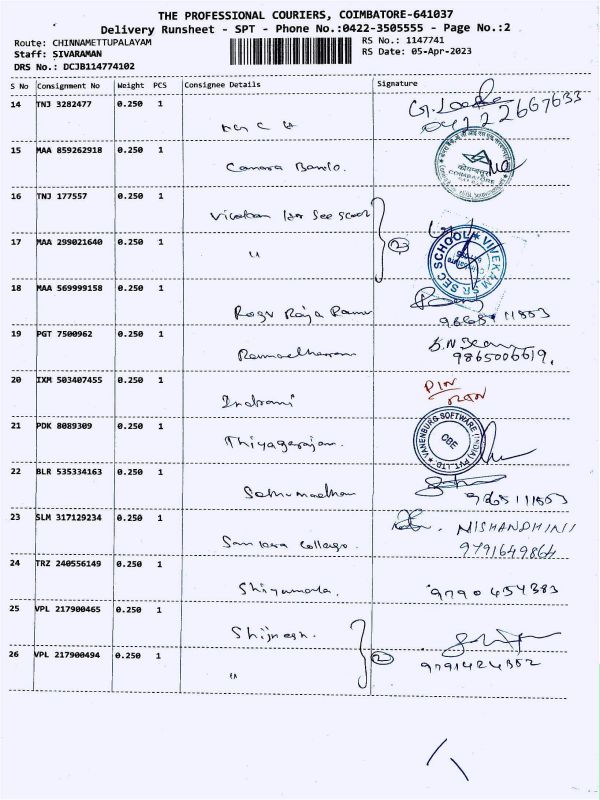 THE PROFESSIONAL COURIERS, COIMBATORE-641037
Delivery Runsheet - SPT - Phone No.:0422-3505555 - Page No.:2
Route: CHINNAMETTUPALAYAM
RS No.: 1147741
Staff: SIVARAMAN
RS Date: 05-Apr-2023
DRS No.: DCJB114774102
S No Consignment No Weight PCS Consignee Details Signature
14 TNJ 3282477 0.250 1
0422 2667633
15 MAA 859262918 0.250 1
Canara Bank
COIMBATORE
16 TNJ 177557 0.250 1
17 MAA 299021640 0.250 1
" 2
18 MAA 569999158 0.250 1
Raja
19 PGT 7500962 0.250 1
9865006619.
20 IXM 503407455 0.250 1
Indrani
PIN
21 PDK 8089309 0.250 1
Thiyagarajan.
VANENBURG SOFTWARE (INDIA) PVT. LTD
CBE
22 BLR 535334163 0.250 1
Sathumadhan
23 SLM 317129234 0.250 1
Sankara College.
NISHANDHINI
9791649864
24 TRZ 240556149 0.250 1
Shiyamala.
9790454383
25 VPL 217900465 0.250 1
Shijnesh.
26 VPL 217900494 0.250 1
" 2
9791424352